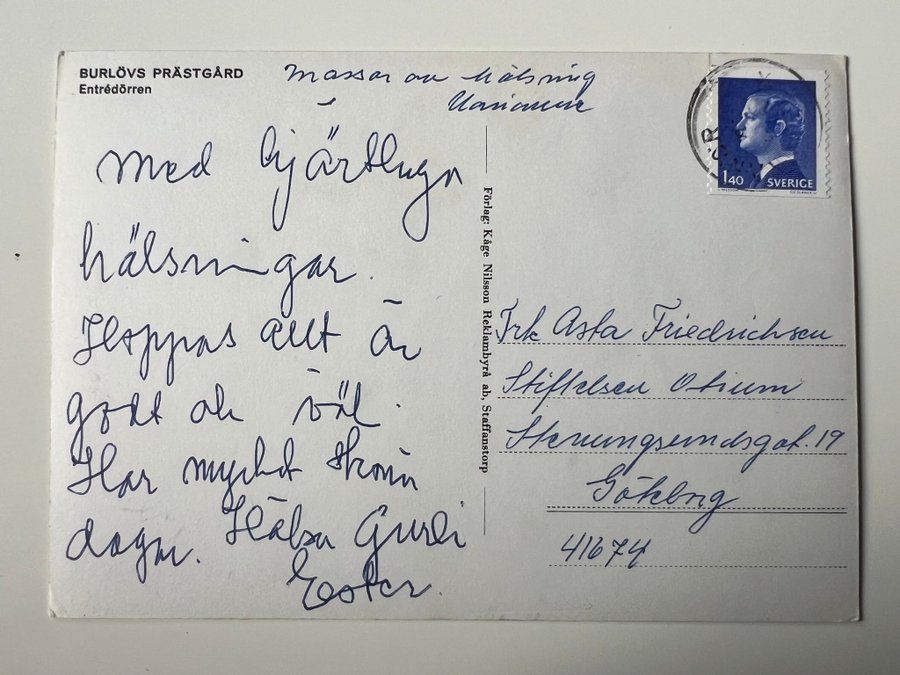 BURLÖVS PRÄSTGÅRD
Entrédörren
Massor av hälsning
Marianne
Med hjärtliga
hälsningar.
Hoppas allt är
godt och väl.
Har mycket sköna
dagar. Hälsa Gurli
Ester.
Förlag: Kåge Nilsson Reklambyrå ab, Staffanstorp
1 40 SVERIGE
Frk Asta Friedrichsen
Stiftelsen Otium
Stenungsundsgat. 19
Göteborg
41674